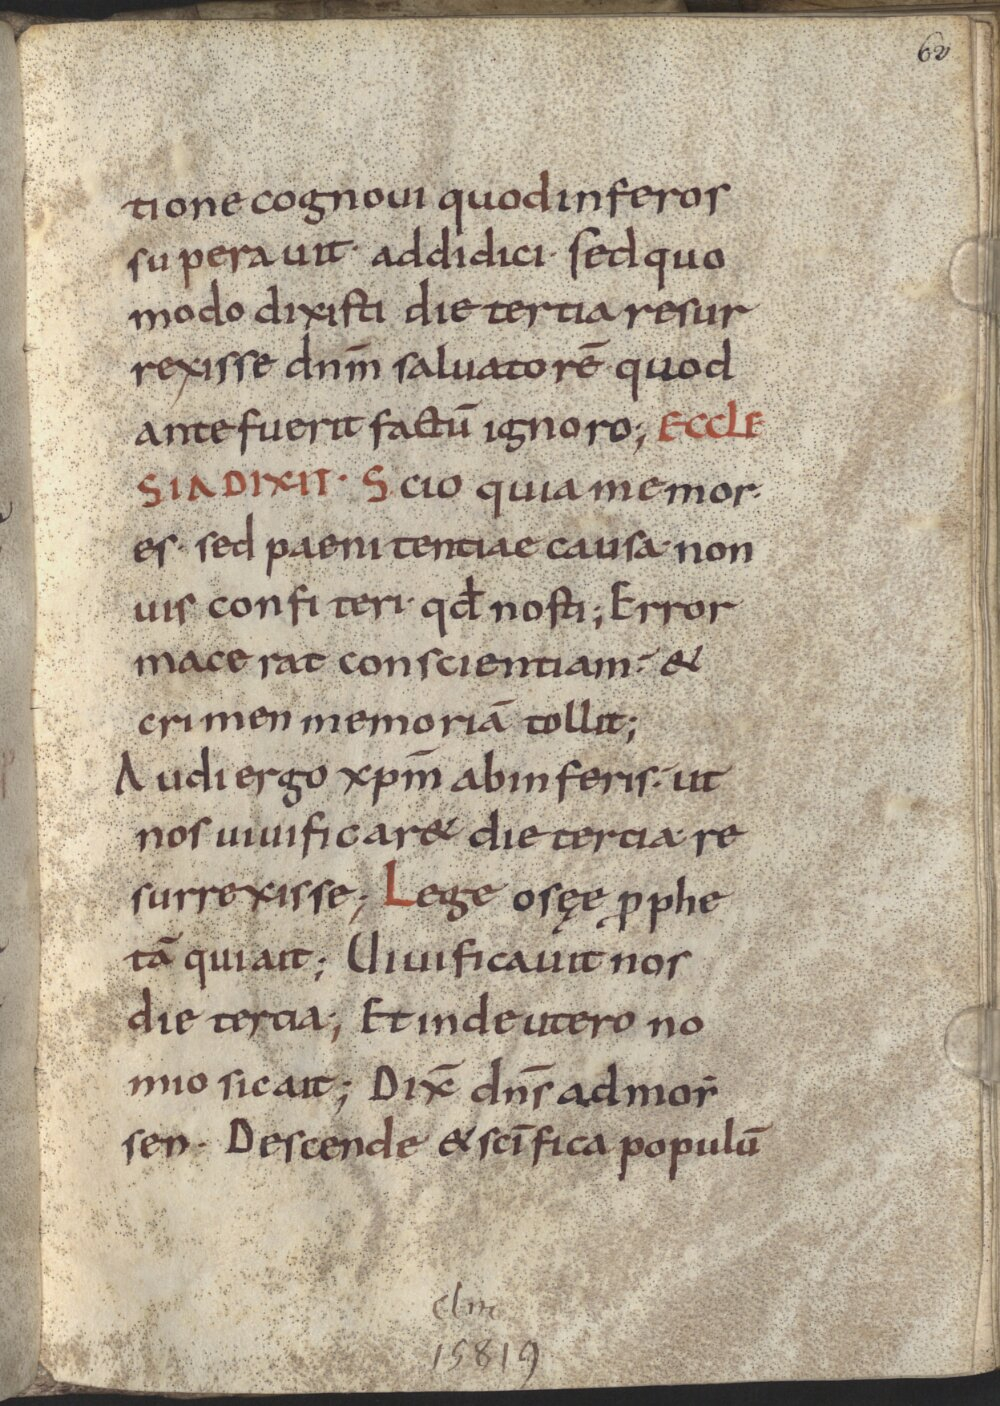 62
tione cognoui quod inferos
superauit· addidici· sed quo
modo dixisti die tertia resur
rexisse dnm̄ saluatorē quod
ante fuerit factū ignoro; ECCLE
SIA DIXIT· Scio quia memor
es· sed paenitentiae causa non
uis confiteri· qđ nosti; Error
macerat conscientiam·̄ &
crimen memoriā tollit;
Audi ergo xpm̄ ab inferis·̄ ut
nos uiuificar& die tertia re
surrexisse; Lege osęe ꝓphe
tā qui ait; Uiuificauit nos
die tertia; Et in deutero no
mio sic ait; Dix̄ dn̄s ad mor̄
sen· Descende & scīfica populū
clm
15819